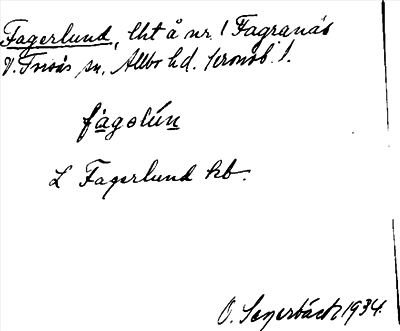 Fagerlund, lht å nr. 1 Fagranäs
V. Torsås sn, Allbo hd. Kronob. l.
fàgəlún
L Fagerlund kb.
O. Segerbäck 1934.